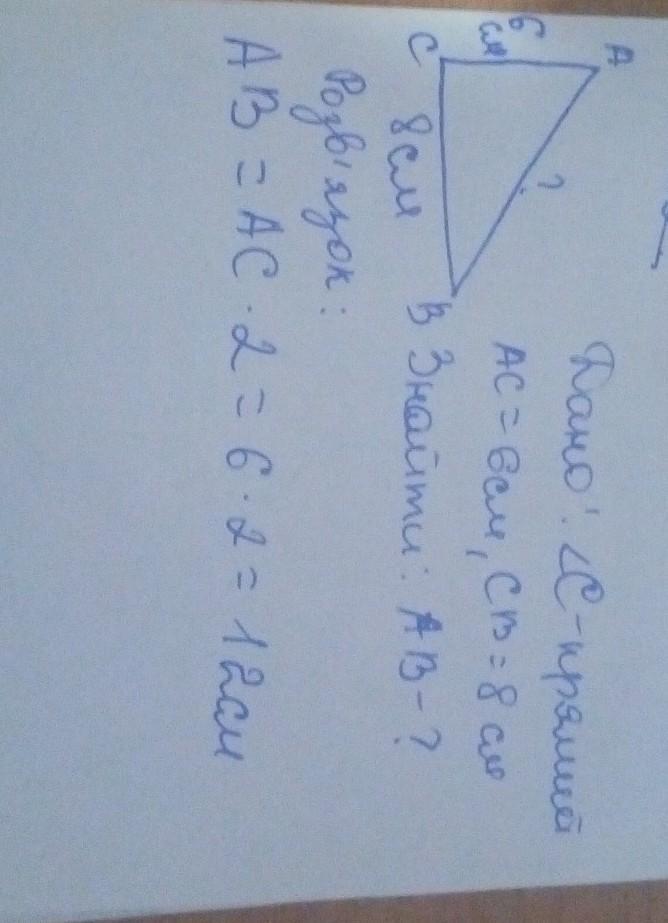 A
6 см
C
?
8см
B
Дано: ∠C - прямий
AC = 6см, CB = 8 см
Знайти: AB - ?
Розв'язок:
AB = AC · 2 = 6 · 2 = 12см